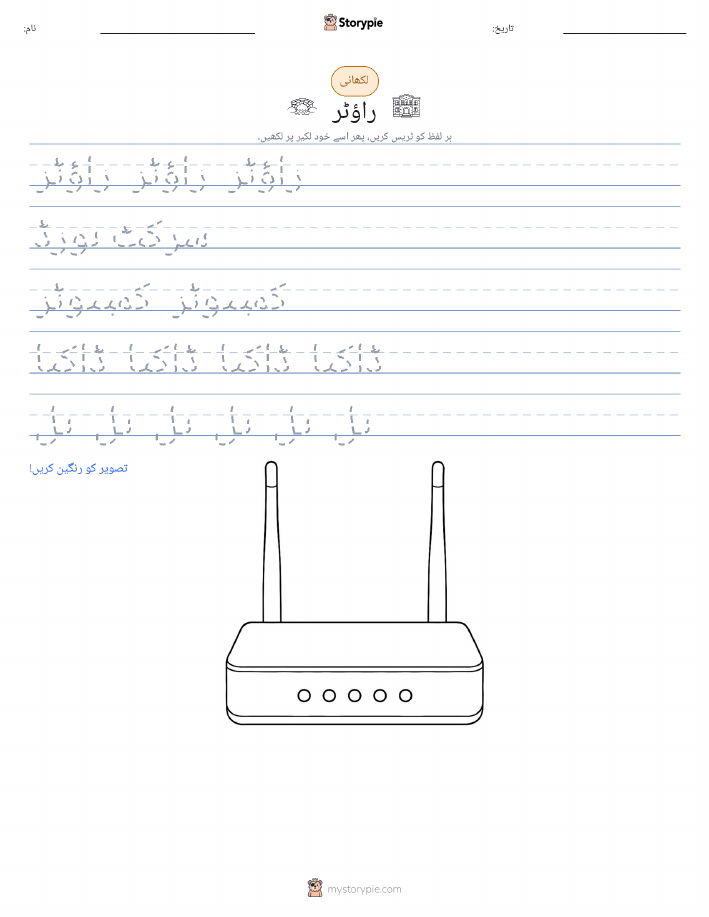 نام:
Storypie
تاریخ:
لکھائی
راؤٹر
ہر لفظ کو ٹریس کریں، پھر اسے خود لکیر پر لکھیں۔
راؤٹر راؤٹر راؤٹر
سرکٹ بورڈ
کمپیوٹر کمپیوٹر
ڈاکیا ڈاکیا ڈاکیا ڈاکیا
تصویر کو رنگین کریں!
mystorypie.com